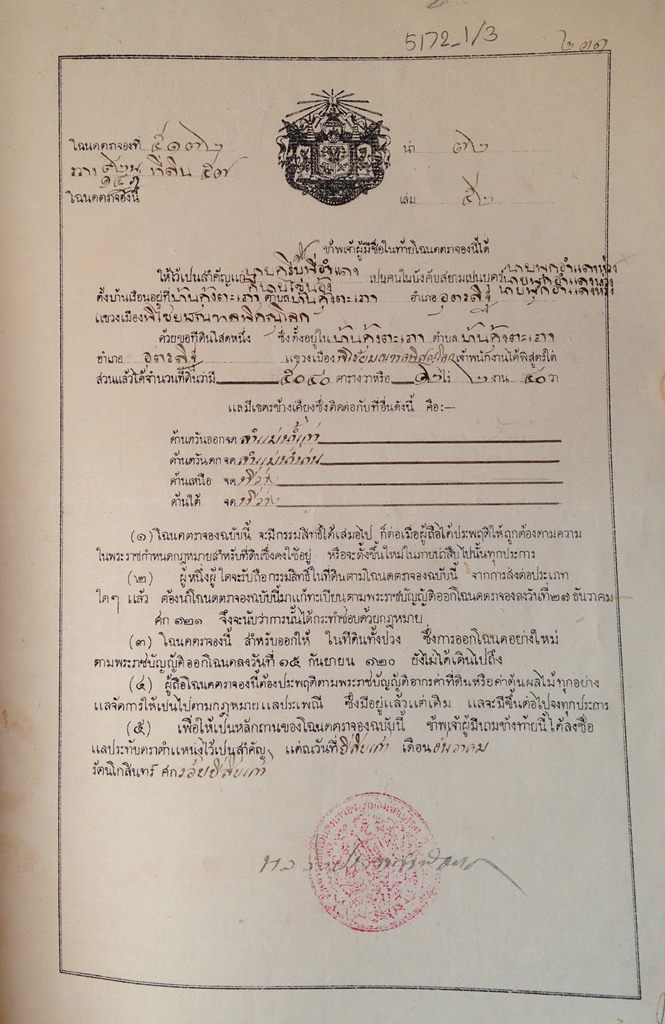 5172_1/3
๒๓๑
โฉนดตราจองที่ ๕๑๗๒
น่า ๗๒
โฉนดตราจองนี้
เล่ม ๕๒
ข้าพเจ้าผู้มีชื่อในท้ายโฉนดตราจองนี้ได้
ให้ไว้เปนสำคัญแก่ เปนคนในบังคับสยามเปนบุตร์
ตั้งบ้านเรือนอยู่ที่บ้านคุ้งตะเภา ตำบลบ้านคุ้งตะเภา อำเภอ อุตรดิฐ
แขวงเมืองพิไชยมณฑลพิศณุโลก
ด้วยขอที่ดินใส่ตหนึ่ง ซึ่งตั้งอยู่ในบ้านคุ้งตะเภา ตำบล บ้านคุ้งตะเภา
อำเภอ อุตรดิฐ แขวงเมืองพิไชยมณฑลพิศณุโลก เจ้าพนักงานได้พิสูตร์ไต่
ส่วนแล้วได้จำนวนที่ดินว่ามี ๕๐๔๐ ตารางวาหรือ ๑๒ ไร่ ๒ งาน ๔๐ วา
แลมีเขตร์ข้างเคียงซึ่งติดต่อกับที่อื่นดังนี้ คือ:—
ด้านตวันออกจด ลำแม่น้ำเก่า
ด้านตวันตกจด ลำแม่น้ำน่าน
ด้านเหนือ จด ที่ว่าง
ด้านใต้ จด ที่ว่าง
(๑) โฉนดตราจองฉบับนี้ จะมีกรรมสิทธิ์ได้เสมอไป ก็ต่อเมื่อผู้ถือได้ประพฤติให้ถูกต้องตามความ
ในพระราชกำหนดกฎหมายสำหรับที่ดินซึ่งคงใช้อยู่ หรือจะตั้งขึ้นใหม่ในภายน่าสืบไปนั้นทุกประการ
(๒) ผู้หนึ่งผู้ใดจะรับถือกรรมสิทธิ์ในที่ดินตามโฉนดตราจองฉบับนี้ จากการส่งต่อประเภท
ใดๆ แล้ว ต้องนำโฉนดตราจองฉบับนี้มาแก้ทะเบียนตามพระราชบัญญัติออกโฉนดตราจองลงวันที่ ๒๗ ธันวาคม
ศก ๑๒๑ จึ่งจะนับว่าการนั้นได้กระทำชอบด้วยกฎหมาย
(๓) โฉนดตราจองนี้ สำหรับออกให้ ในที่ดินทั้งปวง ซึ่งการออกโฉนดอย่างใหม่
ตามพระราชบัญญัติออกโฉนดลงวันที่ ๑๕ กันยายน ๑๒๐ ยังไม่ได้เดินไปถึง
(๔) ผู้ถือโฉนดตราจองนี้ต้องประพฤติตามพระราชบัญญัติอากรค่าที่ดินหรือค่าต้นผลไม้ทุกอย่าง
แลจัดการให้เปนไปตามกฎหมาย แลประเพณี ซึ่งมีอยู่แล้วแต่เดิม แลจะมีขึ้นต่อไปจงทุกประการ
(๕) เพื่อให้เปนหลักถานของโฉนดตราจองฉบับนี้ ข้าพเจ้าผู้มีนามข้างท้ายนี้ได้ลงชื่อ
แลประทับตราตำแหน่งไว้เปนสำคัญ แต่ณวันที่ยี่สิบเก้า เดือน ธันวาคม
รัตนโกสินทร์ ศก ร้อยยี่สิบเก้า